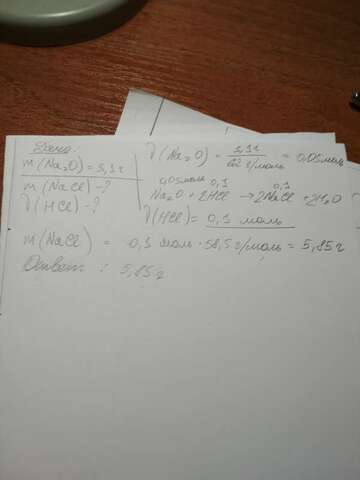 Дано:
m(Na₂O)=3,1г
m(NaCl)-?
ν(HCl)-?
ν(Na₂O) = 3,1г / 62 г/моль = 0,05моль
0,05моль 0,1 0,1
Na₂O + 2HCl → 2NaCl + H₂O
ν(HCl) = 0,1 моль
m(NaCl) = 0,1 моль · 58,5 г/моль = 5,85 г
Ответ: 5,85 г